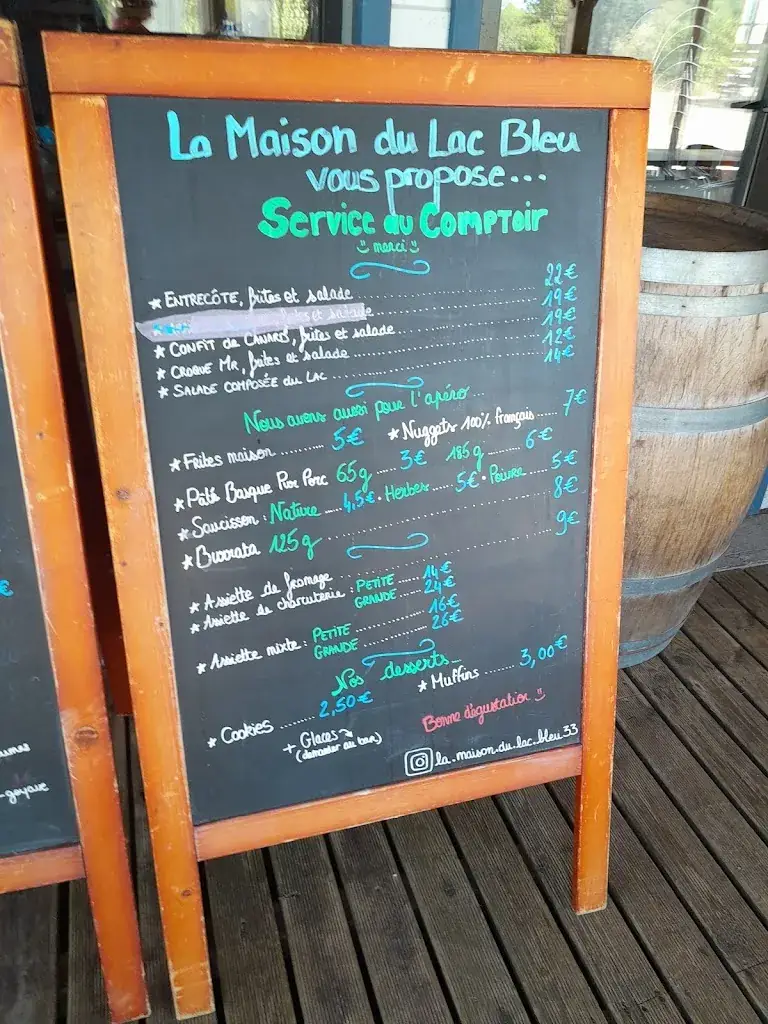 La Maison du Lac Bleu
vous propose...
Service au Comptoir
merci
* Entrecôte, frites et salade ........ 22€
frites et salade ........ 19€
* Confit de Canard, frites et salade ........ 19€
* Croque Mr, frites et salade ........ 12€
* Salade composée du Lac ........ 14€
Nous avons aussi pour l'apéro...
* Frites maison ........ 5€ * Nuggets 100% français ..... 7€
* Pâté Basque Pur Porc 65g ... 3€ 185g ........ 6€
* Saucisson : Nature .... 4,5€ • Herbes .... 5€ • Poivre ... 5€
* Burrata 125g ........ 8€
* Assiette de fromage ........ 9€
* Assiette de charcuterie : Petite ..... 14€
Grande ..... 24€
* Assiette mixte : Petite ........ 16€
Grande ........ 26€
Nos desserts...
* Cookies ....... 2,50€ * Muffins ....... 3,00€
+ Glaces
(demander au bar)
Bonne dégustation
la.maison.du.lac.bleu33
€
-goyave